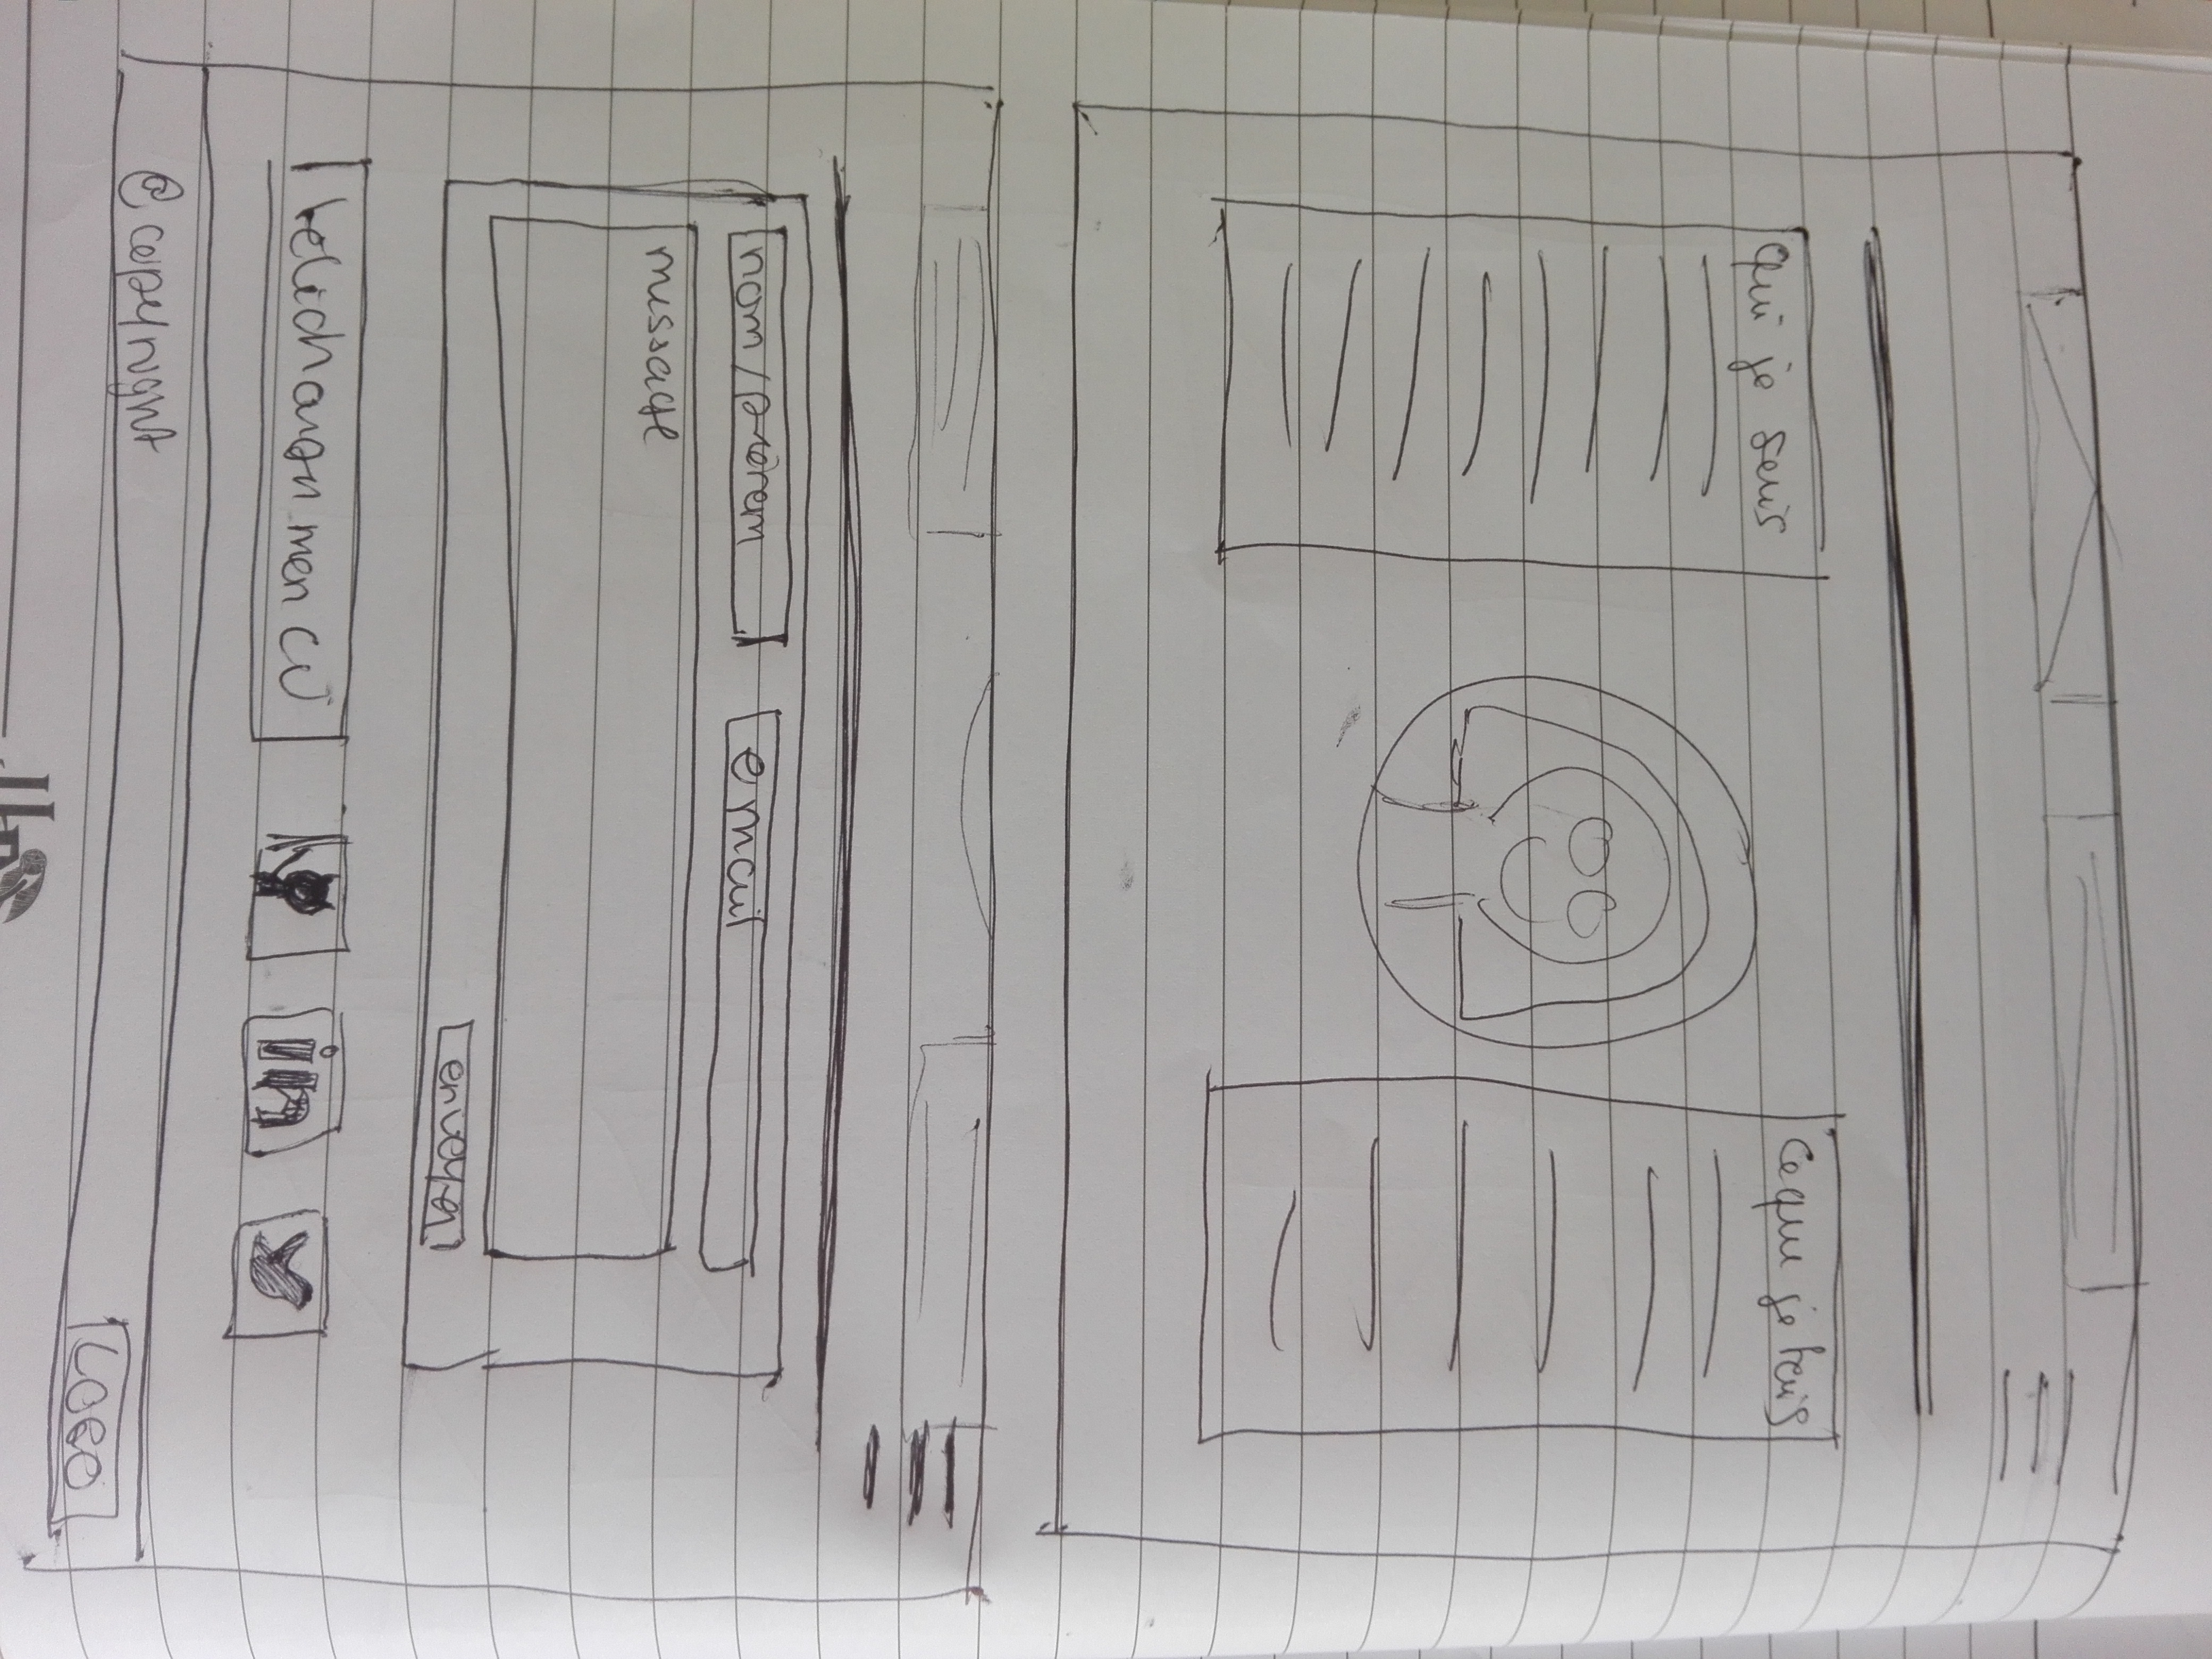 qui je suis
ce que je fais
nom/prénom
email
message
envoyer
télécharger mon CV
in
@copyright
LOGO